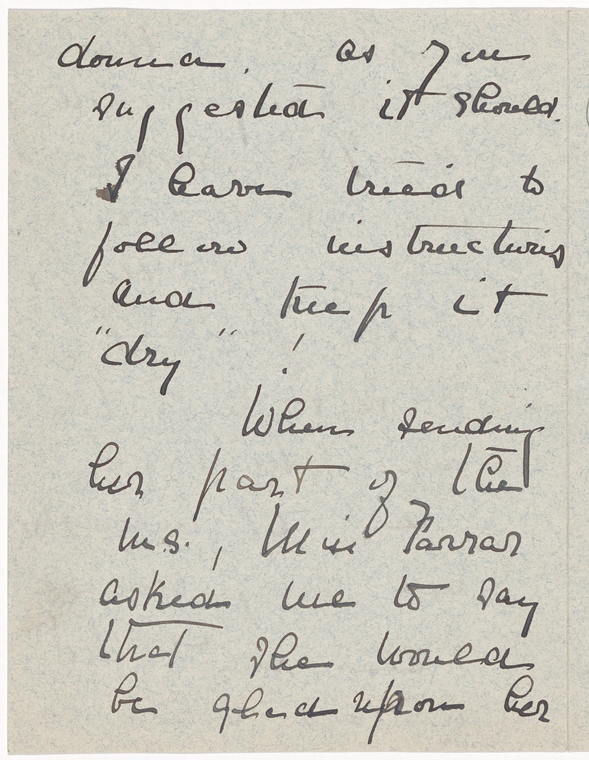 donna. as you
suggested it should.
I have tried to
follow instructions
and keep it
"dry"!
When sending
her part of the
ms., Miss Farrar
asked me to say
that she would
be glad upon her